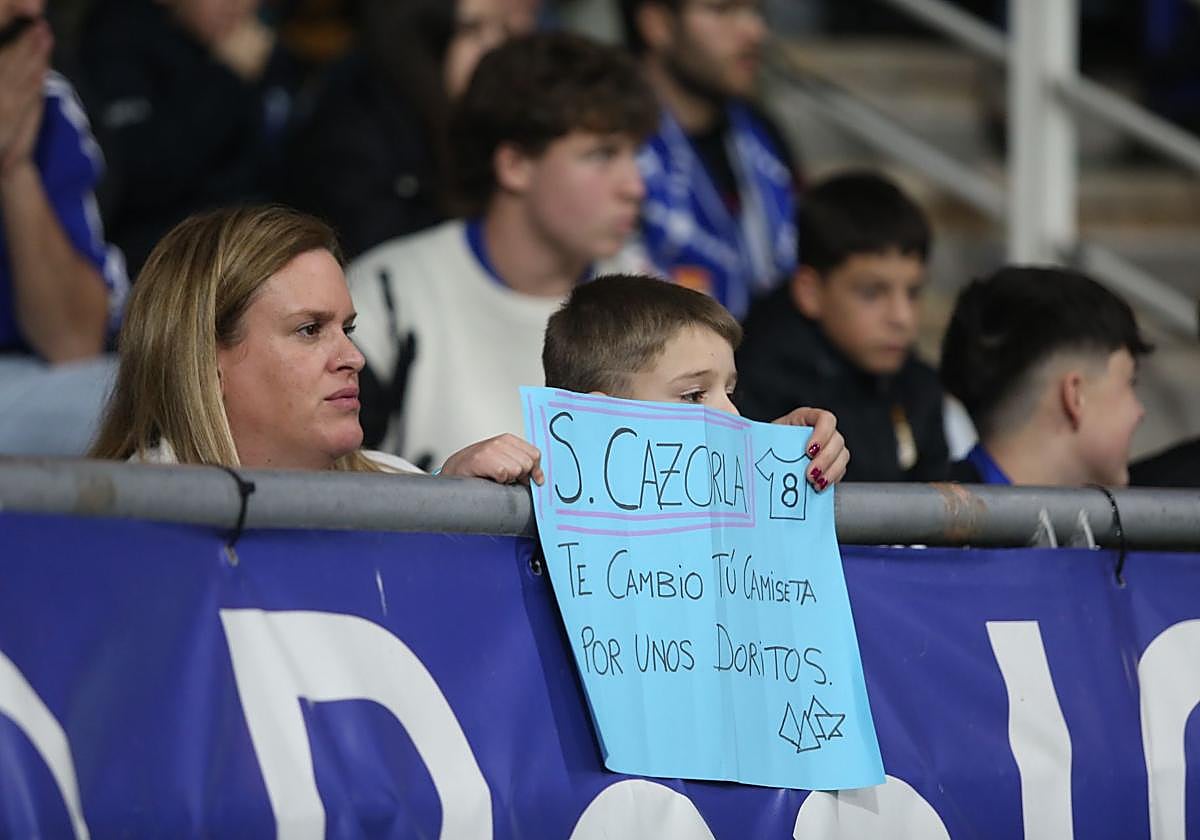 S. CAZORLA 8
TE CAMBIO TÚ CAMISETA
POR UNOS DORITOS.